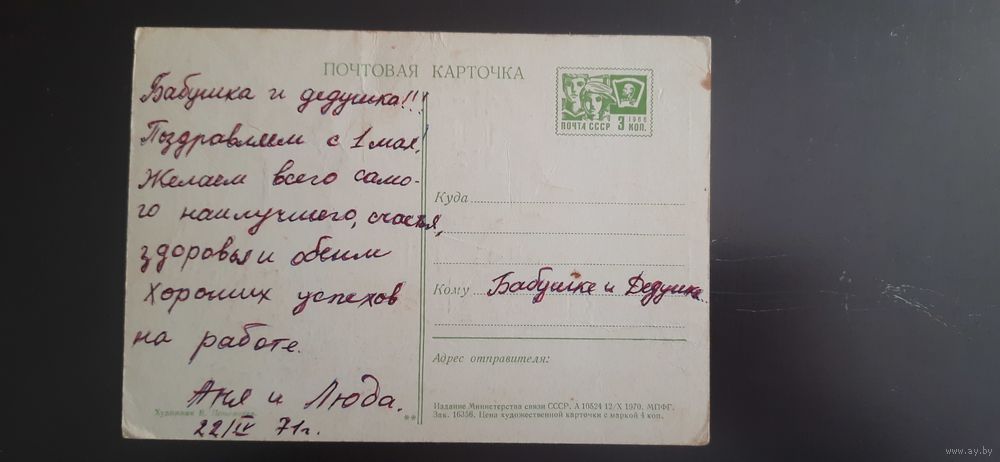 ПОЧТОВАЯ КАРТОЧКА
Бабушка и дедушка!!!
Поздравляем с 1 мая!
Желаем всего само-
го наилучшего, счастья,
здоровья и обоим
хороших успехов
на работе.
Аня и Люда.
22/IV 71г.
Художник В.
**
1966
ПОЧТА СССР 3 КОП.
Куда
Кому Бабушке и Дедушке
Адрес отправителя:
Издание Министерства связи СССР. А 10524 12/X 1970. МПФГ.
Зак. 16356. Цена художественной карточки с маркой 4 коп.
www.ay.by